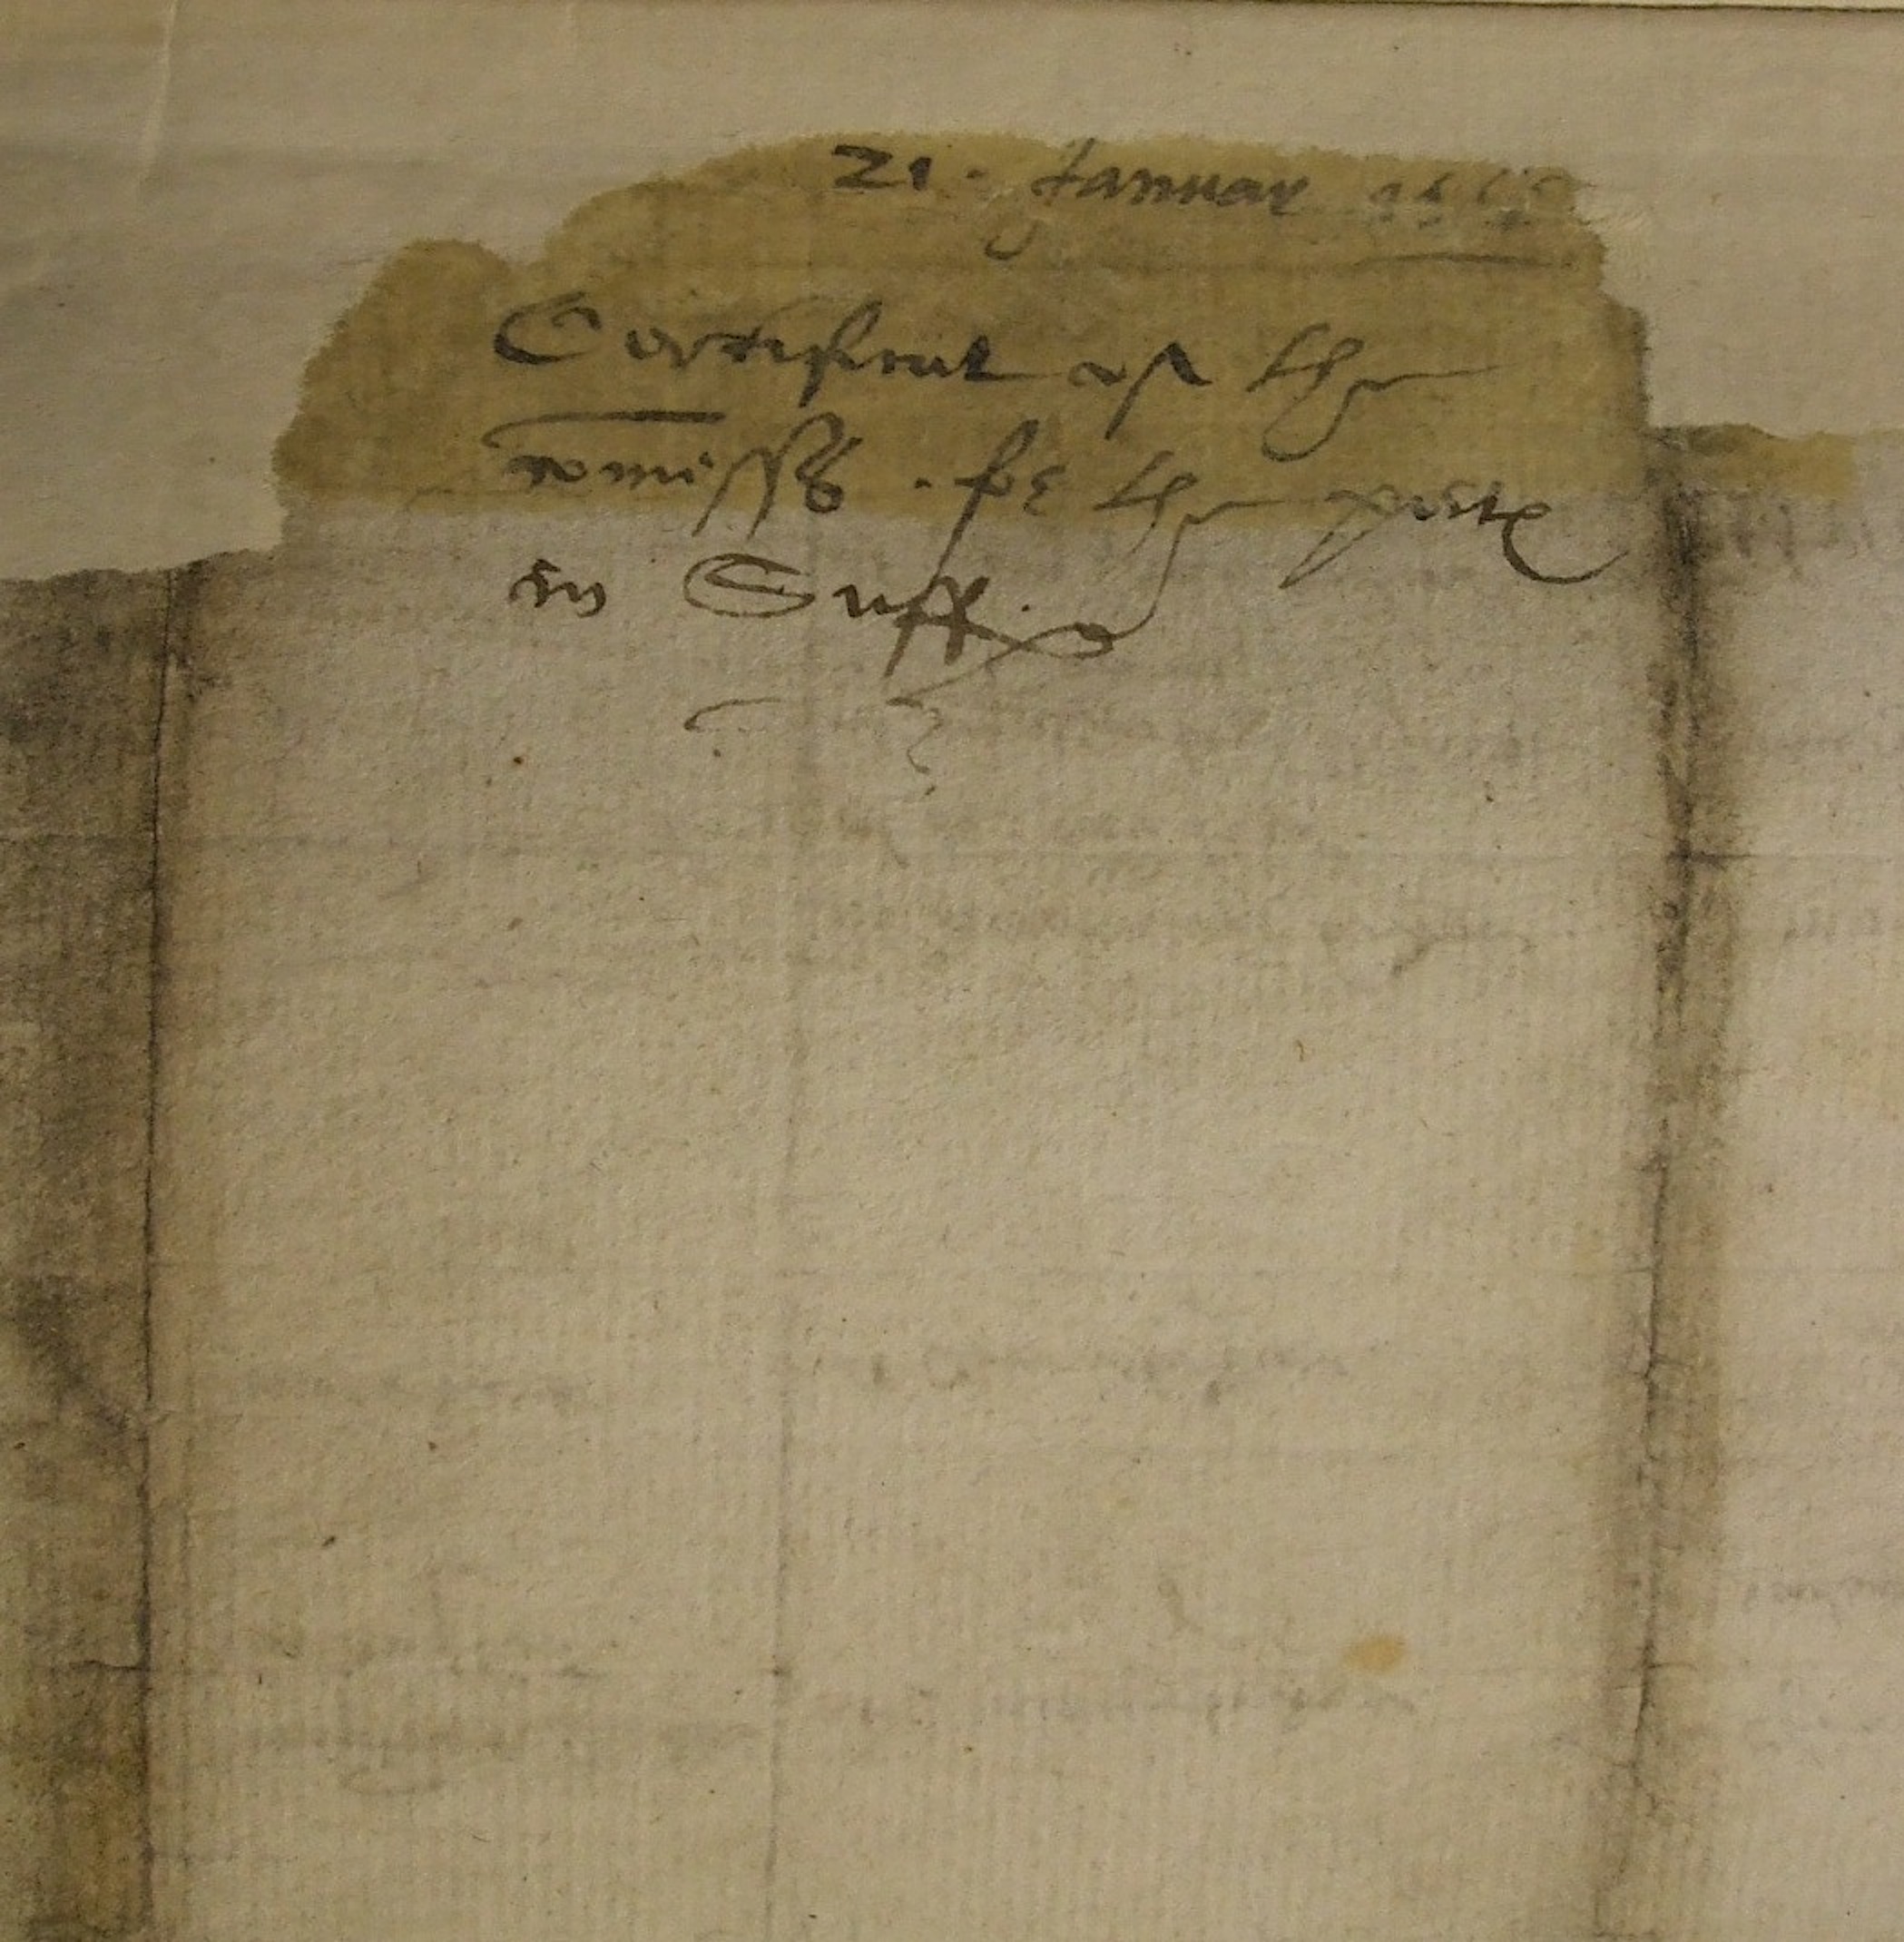 21 · Januar 1565
Certificat of the
comiss . for the portes
in Suff.